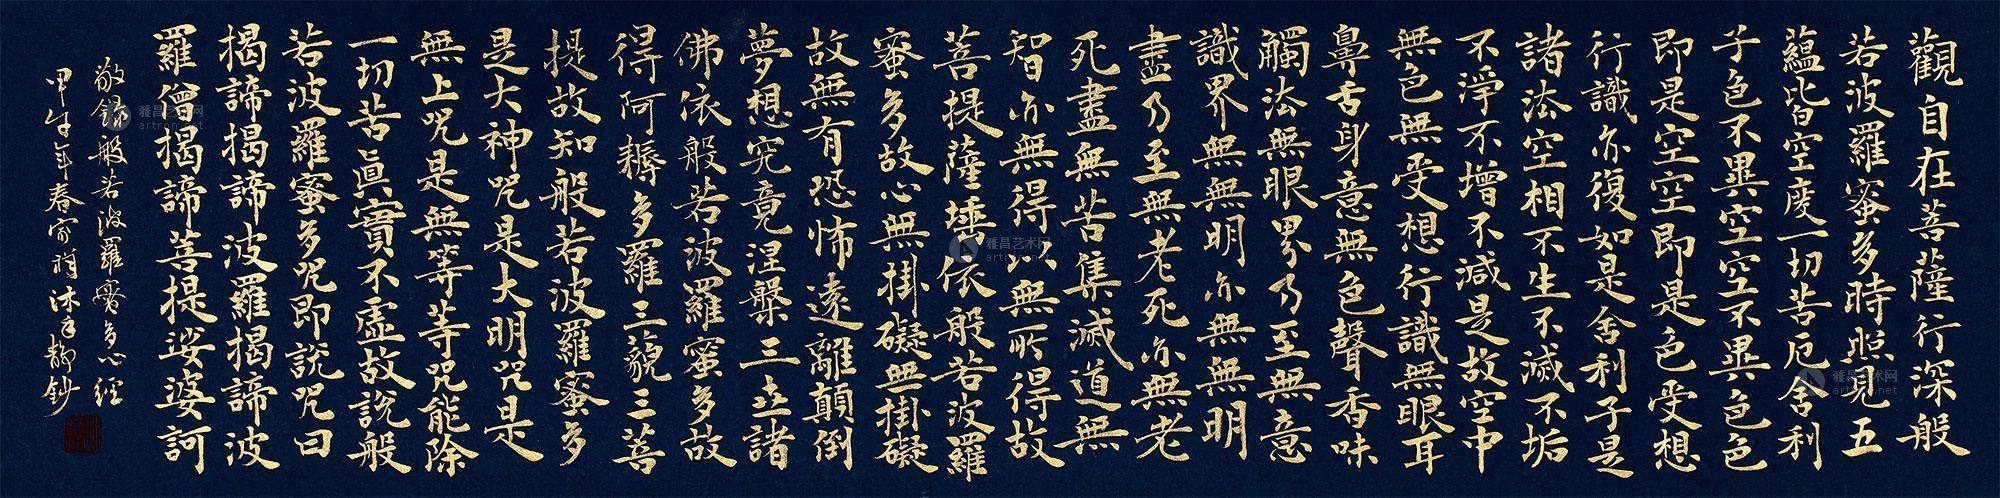 觀自在菩薩行深般
若波羅蜜多時照見五
蘊皆空度一切苦厄舍利
子色不異空空不異色色
即是空空即是色受想
行識亦復如是舍利子是
諸法空相不生不滅不垢
不淨不增不減是故空中
無色無受想行識無眼耳
鼻舌身意無色聲香味
觸法無眼界乃至無意
識界無無明亦無無明
盡乃至無老死亦無老
死盡無苦集滅道無
智亦無得以無所得故
菩提薩埵依般若波羅
蜜多故心無掛礙無掛礙
故無有恐怖遠離顛倒
夢想究竟涅槃三世諸
佛依般若波羅蜜多故
得阿耨多羅三藐三菩
提故知般若波羅蜜多
是大神咒是大明咒是
無上咒是無等等咒能除
一切苦真實不虛故說般
若波羅蜜多咒即說咒曰
揭諦揭諦波羅揭諦波
羅僧揭諦菩提娑婆訶
敬錄般若波羅蜜多心經
甲午年春沐手靜鈔
雅昌艺术网
artron.net
雅昌艺术网
artron.net
雅昌艺术网
artron.net